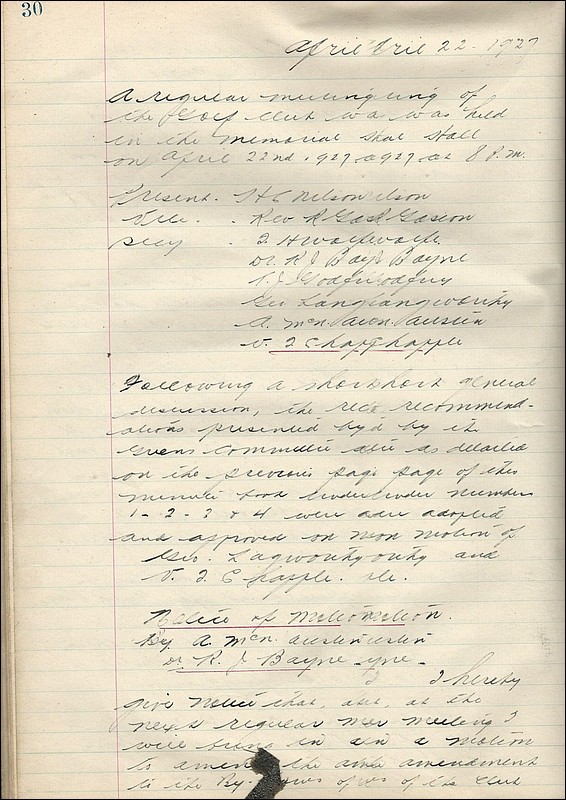 30
April ril 22 - 1927
A regular meeting ing of
the Golf Club was was held
in the Memorial Hall
on April 22nd 1927 at 8 P.m.
Present. H C Nelson elson
Rev R
Secy . J. H Wolfe wolfe
Dr. R J Bayne Bayne
Geo Langworthy
A. McN. Austin
V. J Chapple
Following a short short general
discussion, the reco recommend-
ations presented by d by the
Greens Committee as detailed
on the previous page page of this
minute book under under numbers
1 - 2 - 3 + 4 were adopted
and approved on motion of
Geo. Lagworthy orthy and
V. J. Chapple.
Notice of Motion otion.
By A. McN. Austin ustin
Dr. R. J Bayne yne -
I hereby
give notice that, at, at the
next regular meeting I
will bring in a motion
to amend the amendment
to the By- laws of the Club